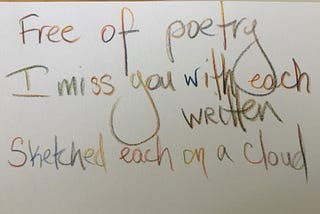 Free of poetry
I miss you with each
written
Sketched each on a cloud